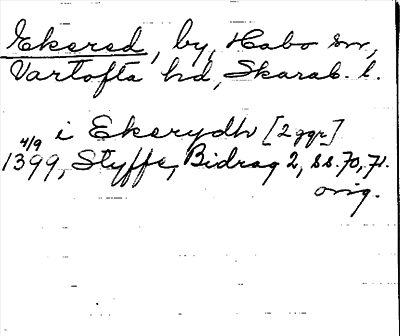 Ekered, by, Habo sn,
Vartofta hd, Skarab. l.
i Ekerydh [2 ggr]
4/9
1399, Styffe, Bidrag 2, ss. 70, 71.
orig.